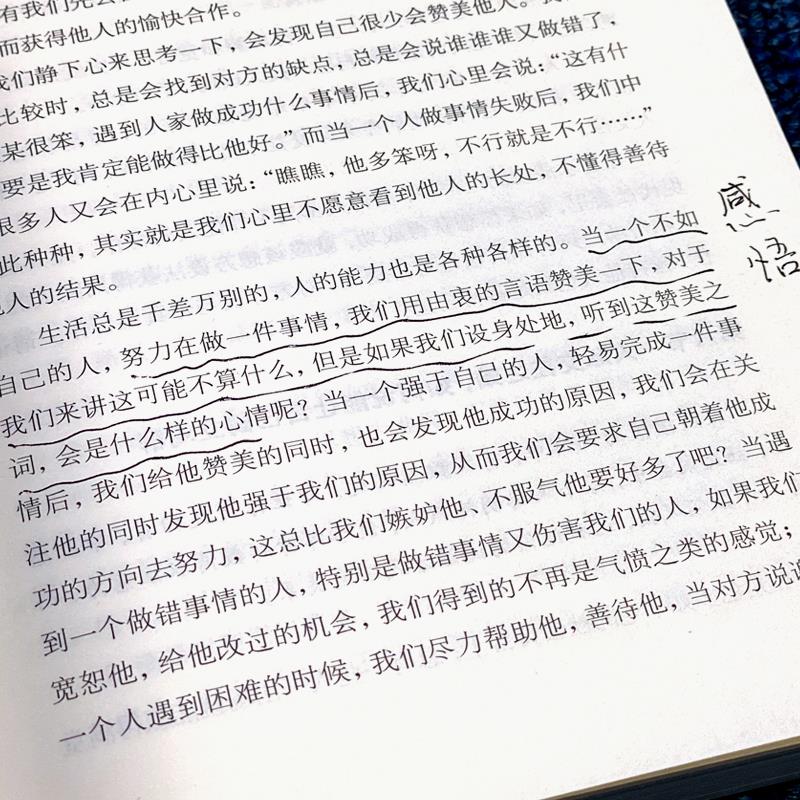 有我们先会
而获得他人的愉快合作。
我们静下心来思考一下，会发现自己很少会赞美他人。我
比较时，总是会找到对方的缺点，总是会说谁谁谁又做错了，
某很笨，遇到人家做成功什么事情后，我们心里会说：“这有什
要是我肯定能做得比他好。”而当一个人做事情失败后，我们中
很多人又会在内心里说：“瞧瞧，他多笨呀，不行就是不行……”
此种种，其实就是我们心里不愿意看到他人的长处，不懂得善待
他人的结果。
生活总是千差万别的，人的能力也是各种各样的。当一个不如
自己的人，努力在做一件事情，我们用由衷的言语赞美一下，对于
我们来讲这可能不算什么，但是如果我们设身处地，听到这赞美之
词，会是什么样的心情呢？当一个强于自己的人，轻易完成一件事
情后，我们给他赞美的同时，也会发现他成功的原因，我们会在关
注他的同时发现他强于我们的原因，从而我们会要求自己朝着他成
功的方向去努力，这总比我们嫉妒他、不服气他要好多了吧？当遇
到一个做错事情的人，特别是做错事情又伤害我们的人，如果我们
宽恕他，给他改过的机会，我们得到的不再是气愤之类的感觉；
一个人遇到困难的时候，我们尽力帮助他，善待他，当对方说谢
感悟